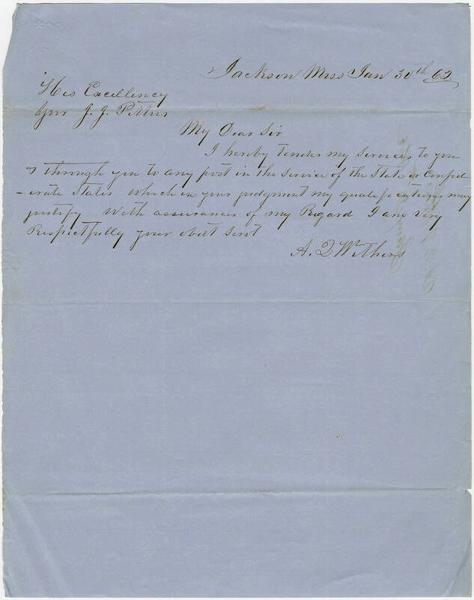 Jackson Miss Jan 30th 62
His Excellency
Gov J. J. Pettus
My Dear Sir
I hereby tender my services to you
& through you to any post in the service of the State or Confed
-erate States which in your judgment my qualifications may
justify With assurances of my Regard I am very
Respectfully your obdt Servt
A. Q Withers